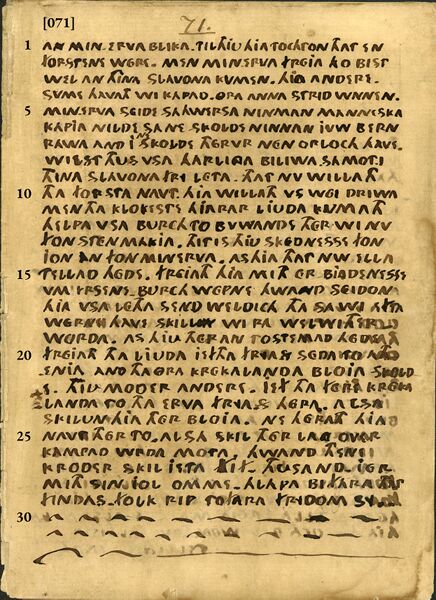 [071]
71.
1 AN MINERVA BLIKA. TILTHIU HIA TOCHTON THAT EN
FORSTENE WERE. MEN MINERVA FREIA HO BIST
WEL AN THINA SLAVONA KVMEN. HIA ANDERE.
SVME HAVATH WI KAPAD. ORA ANNA STRID WNNEN.
5 MINERVA SEIDE SAHWERSA NINMAN MANNESKA
KAPIA NILDE SA NE SKOLDE NINMAN IVW BERN
RAWA AND I NE SKOLDE THERVR NEN ORLOCH HAVE.
WILST THUS VSA HARLIGA BILIWA SA MOT I
THINA SLAVONA FRI LETA. THAT NV WILLATH
10 THA FORSTA NAVT. HIA WILLATH VS WEI DRIWA
MEN THA KLOKESTE HIARAR LIUDA KUMATH
HELPA VSA BURCH TO BUWANDE THER WI NV
FON STEN MAKIA. THIT IS THIU SKEDNESSE FON
ION AN FON MINERVA. AS HIA THAT NW ELLA
15 TELLAD HEDE. FREIATH HIA MITH ERBIADENESSE
VM IRSENE BURCHWEPNE HWAND SEIDON
HIA VSA LETHA SEND WELDICH THA SA WI EFTA
WEPNE HAVE SKILLON WI RA WEL WITHER
WORDA. AS HIU THERAN TOSTEMAD HEDE
20 FREIATH THA LIUDA IEF THA FRYAS SEDA TO ATH
ENIA AND THA ORA KREKALANDA BLOIA SKOLD
E. THIU MODER ANDERE. IEF THA FERE KREKA
LANDA TO THA ERVA FRYAS HERA. ALSA
SKILUN HIA THER BLOIA. NE HERATH HIA
25 NAVT THER TO. ALSA SKIL THER LANG OVAR
KAMPAD WRDA MOTA, HWAND THENE
KRODER SKIL IETA FIF THUSAND IER
MITH SIN IOL OMMEHLAPA BIFARA THET
FINDAS FOLK RIP TO FARA FRIDOM SY
30